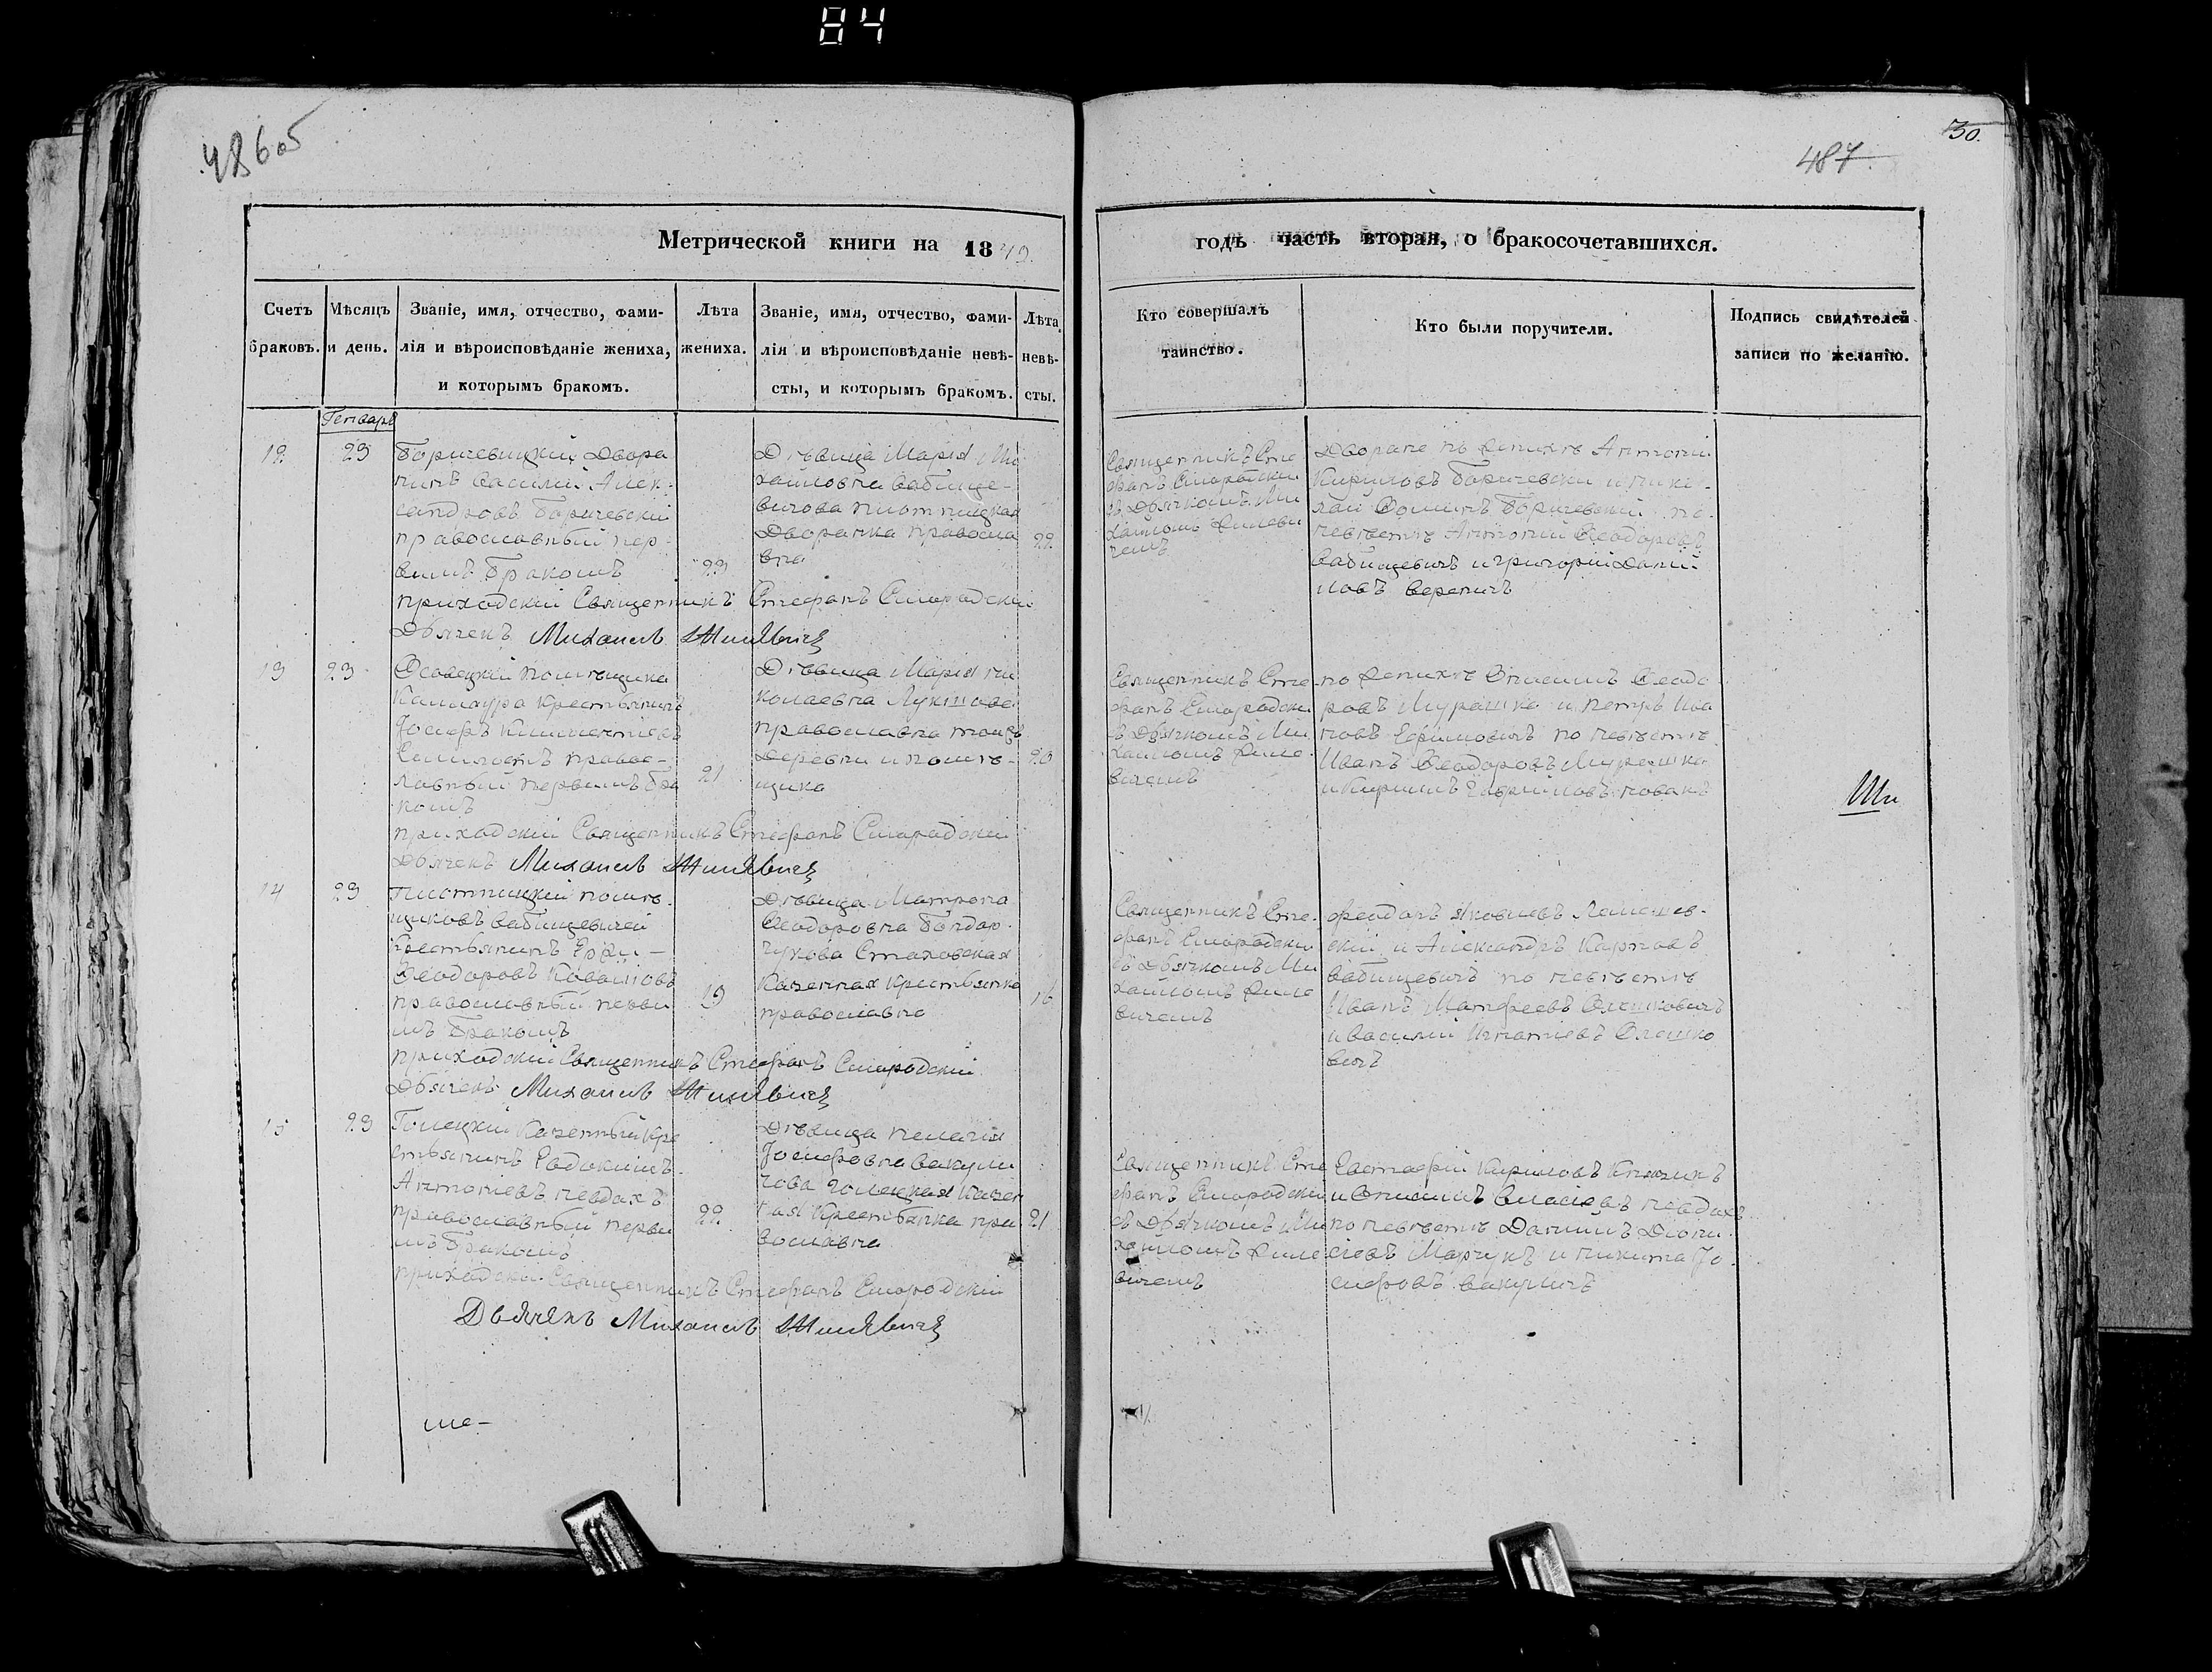 84
486об
30.
487
Метрической книги на 1842.
годъ часть вторая, о бракосочетавшихся.
Счетъ браковъ.
Мѣсяцъ и день.
Званіе, имя, отчество, фами-
лія и вѣроисповѣданіе жениха,
и которымъ бракомъ.
Лѣта
жениха.
Званіе, имя, отчество, фами-
лія и вѣроисповѣданіе невѣ-
сты, и которымъ бракомъ.
Лѣта
невѣ-
сты.
Кто совершалъ
таинство.
Кто были поручители.
Подпись свидѣтелей
записи по желанію.
Генварь
12
23
Боричевицкій Двора
нинъ Василій Алек-
сандровъ Боричевскій
православный пер-
вимъ бракомъ
23
Дѣвица Марія Ми
хаиловна Вабище-
вичова Плотницкая
Дворанка правосла
вна
22
Священникъ Сте
фанъ Смородски
съ Дьячкомъ Ми
хаиломъ Жилеви
чемъ
Дворане по женихѣ Антоній
Кириловъ Боричевски и Нико-
лай Фоминъ Боричевскій по
невѣстѣ Антоній Феодоровъ
Вабищевичъ и Григорій Дани-
ловъ Вереничъ
приходскій Священникъ Стефанъ Смородскій
Дьячекъ Михаилъ Жилевичъ
13
23
Осовецкій помѣщика
крестьянинъ
Іосифъ Климентіевъ
правос-
лавный первимъ бра
комъ
21
Дѣвица Марія Ни
колаевна
православна тоижъ
деревни и помѣ-
щика
20
Священникъ Сте
фанъ Смородски
съ Дьячкомъ Ми
хаиломъ Жиле
вичемъ
по женихѣ Онисимъ Феодо
ровъ Мурашко и Петръ Ива
новъ Ефимовичъ по невѣстѣ
Иванъ Феодоровъ Мурашко
и Кирилъ Гавриловъ
приходскій Священникъ Стефанъ Смородскій
Дьячекъ Михаилъ Жилевичъ
14
23
Плотницкій помѣ-
щиковъ Вабищевичей
Крестьянинъ
Феодоровъ Ковалювъ
православный перви
мъ бракомъ
19
Дѣвица Матрона
Феодоровна Бондар-
чукова Стаховская
Казенная крестьянка
православна
16
Священникъ Сте-
фанъ Смородски
съ Дьячкомъ Ми
хаиломъ Жиле
вичемъ
Феодоръ Яковлевъ Лемешев-
скій и Александръ Карповъ
Вабищевичъ по невѣстѣ
Иванъ Матфеевъ Олешковичъ
и Василій Игнатіевъ Олешко
вичъ
приходскій Священникъ Стефанъ Смородскій
Дьячекъ Михаилъ Жилевичъ
15
23
Голецкій Казенный Кре
стьянинъ Евдокимъ
Антоніевъ Невдахъ
православный перви
мъ бракомъ
22
Дѣвица Пелагія
Іосифовна Вакули
чова Голецкая Казен
ная Крестьянка пра
вославна
21
Священникъ Сте
фанъ Смородски
съ Дьячкомъ Ми
хаиломъ Жиле
вичемъ
Евстафій Кириловъ
и Онисимъ Власіевъ Невдахъ
по невѣстѣ Данилъ Діони
сіевъ Марчукъ и Никита Іо
сифовъ Вакуличъ
приходски Священникъ Стефанъ Смородскій
Дьячекъ Михаилъ Жилевичъ